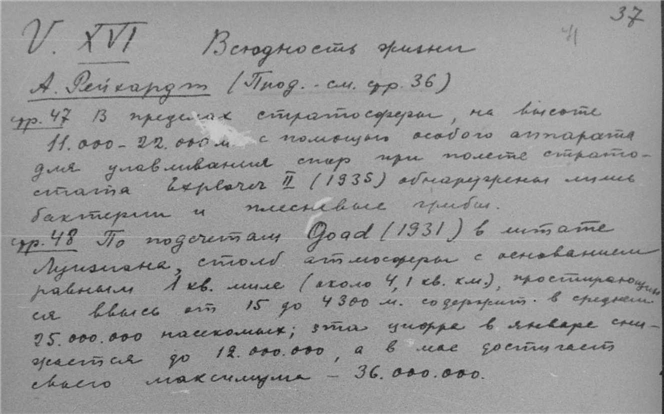 37
V. XVI Всюдность жизни
А. Рейхардт (Прод. - см. стр. 36)
стр. 47 В пределах стратосферы, на высоте
11.000 - 22.000 м. с помощью особого аппарата
для улавливания спор при полете страто-
стата Explorer II (1935) обнаружены лишь
бактерии и плесневые грибы.
стр. 48 По подсчетам Goad (1931) в штате
Луизиана, столб атмосферы с основанием
равным 1 кв. миле (около 4,1 кв. км.), простирающий
ся ввысь от 15 до 4300 м. содержит в среднем
25.000.000 насекомых; эта цифра в январе сни-
жается до 12.000.000, а в мае достигает
своего максимума - 36.000.000.